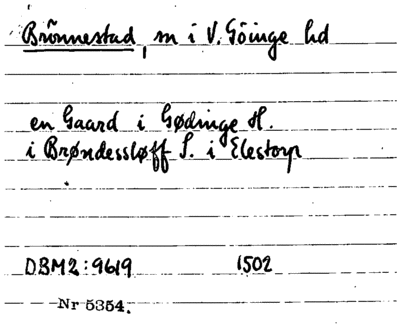 Brönnestad, sn i V. Göinge hd
en Gaard i Gødinge H.
i Brøndessløff S. i Elestorp
DBM2:9619 1502
Nr 5354.